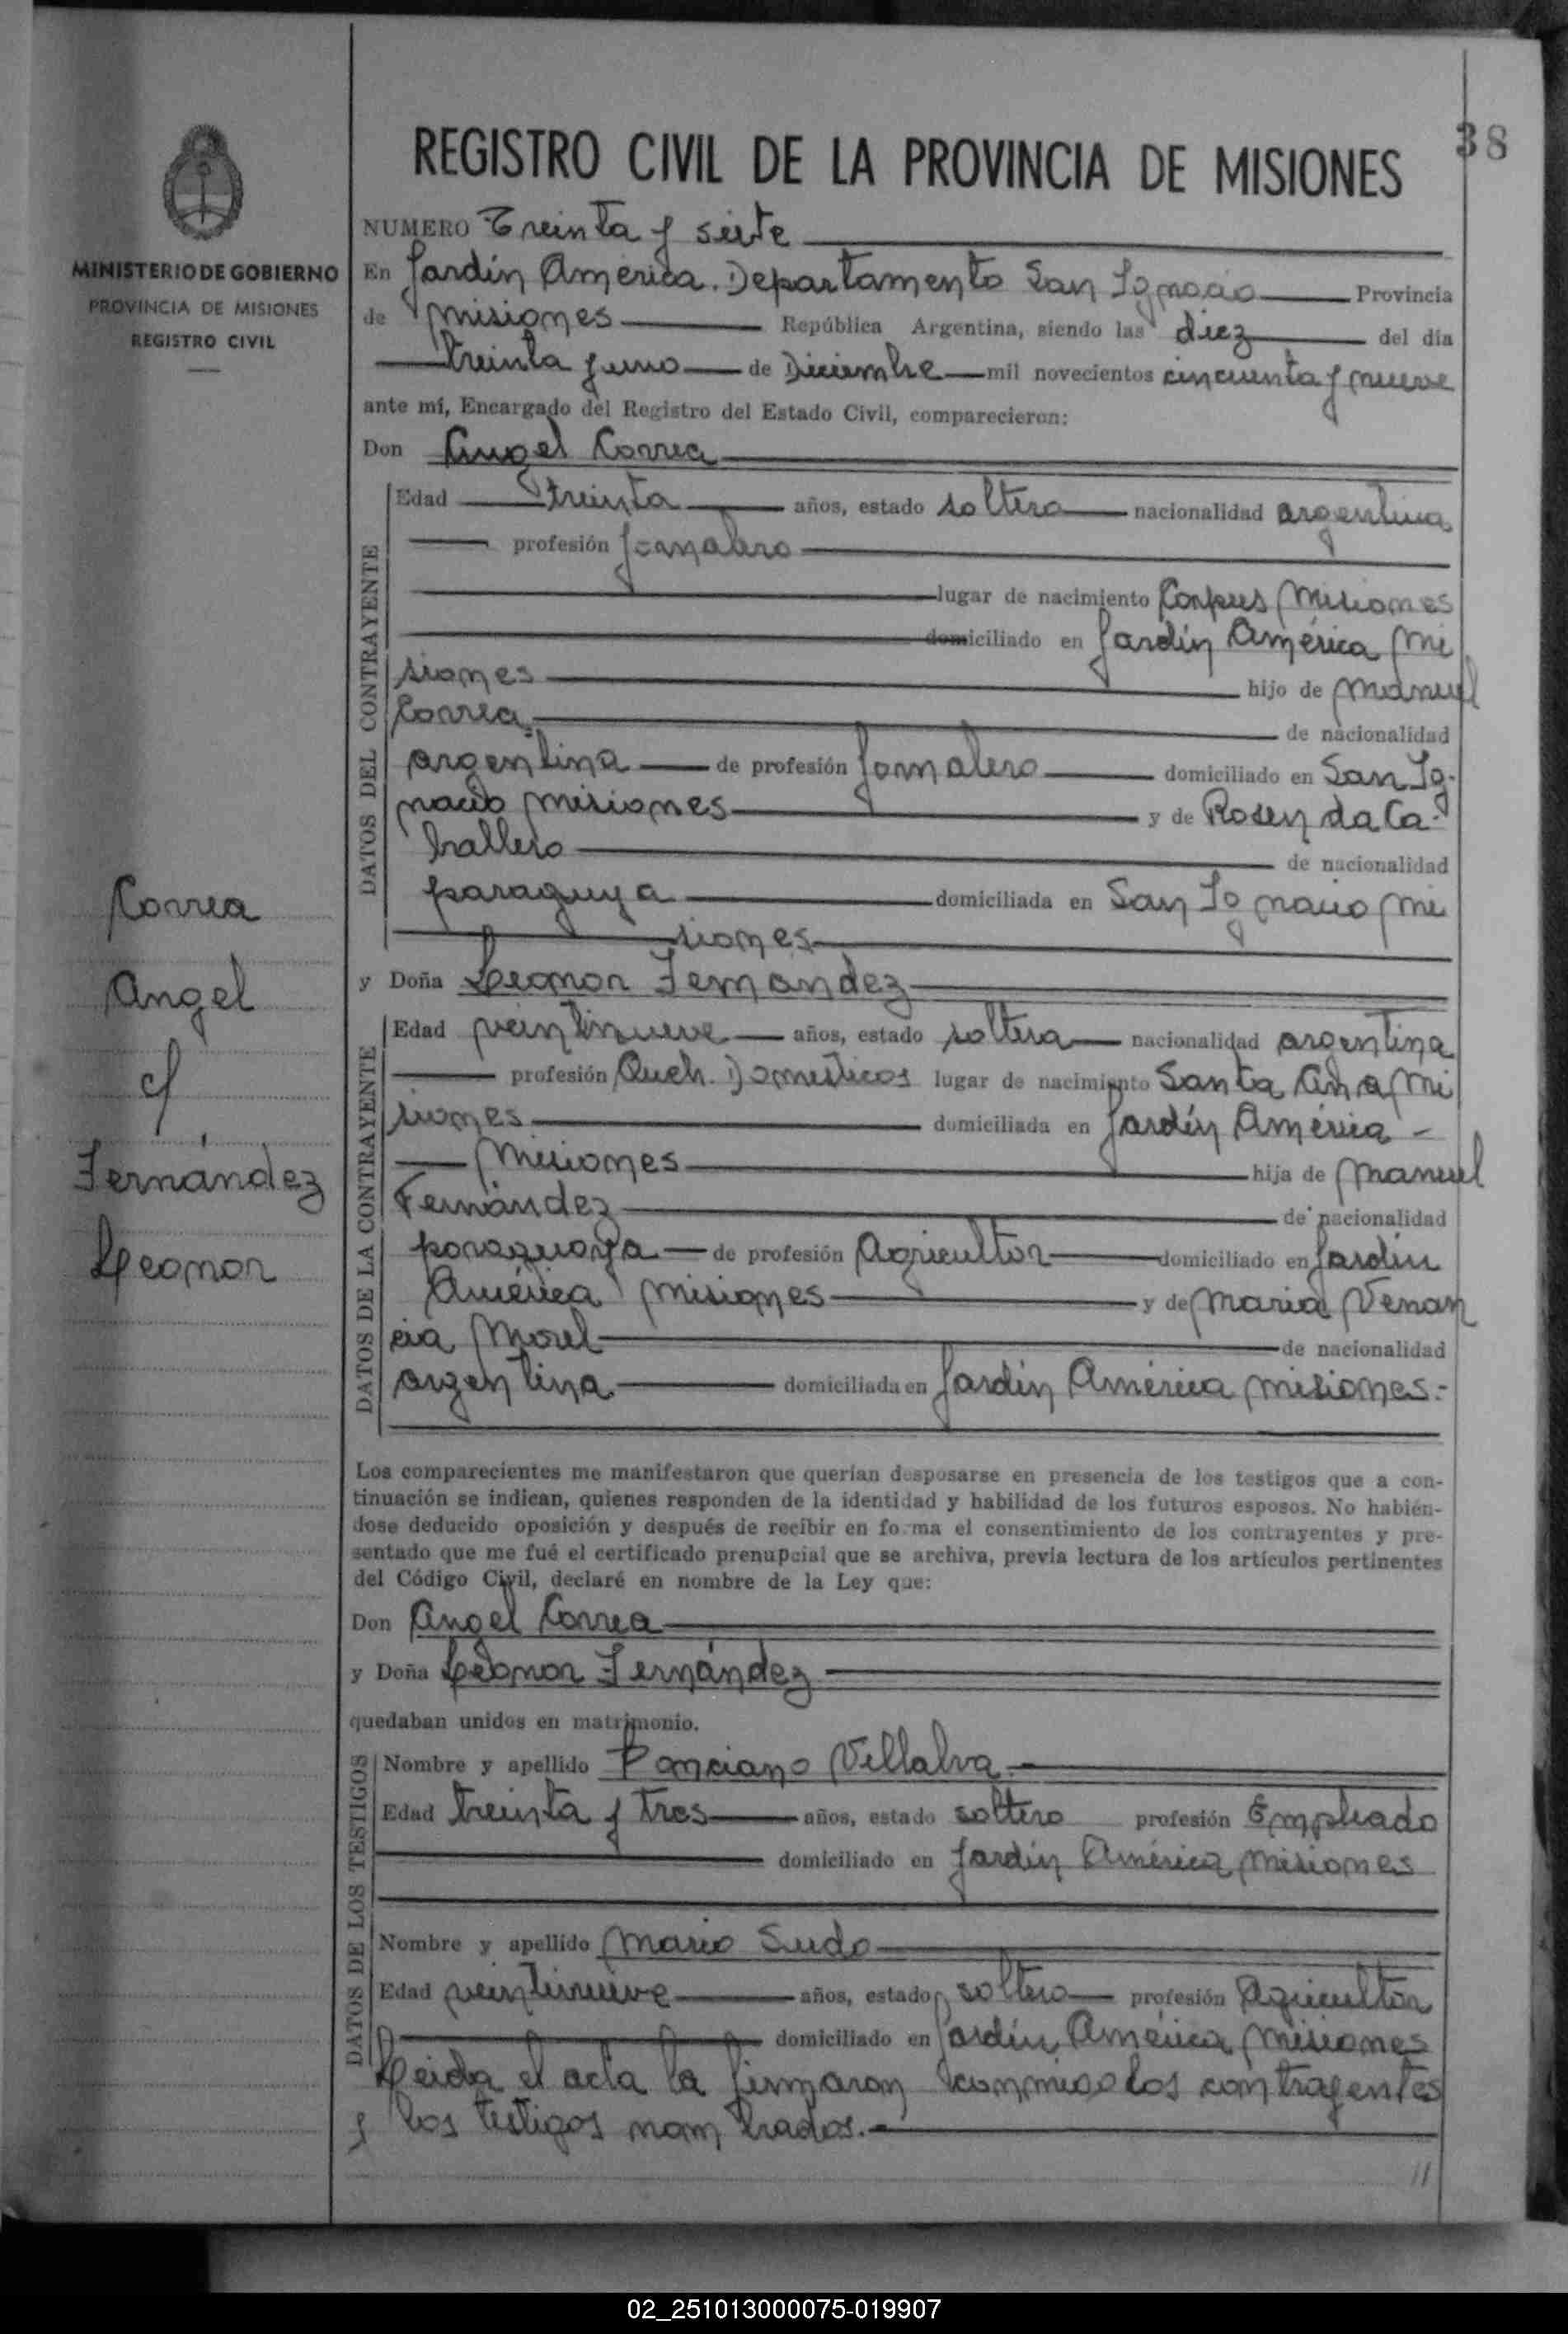 38
REGISTRO CIVIL DE LA PROVINCIA DE MISIONES
MINISTERIO DE GOBIERNO
PROVINCIA DE MISIONES
REGISTRO CIVIL
NUMERO Treinta y siete
En Jardín América. Departamento San Ignacio Provincia
de Misiones República Argentina, siendo las diez del día
treinta y uno de Diciembre mil novecientos cincuenta y nueve
ante mí, Encargado del Registro del Estado Civil, comparecieron:
Don Angel Correa
DATOS DEL CONTRAYENTE
Edad treinta años, estado soltero nacionalidad argentina
profesión Jornalero
lugar de nacimiento Corpus Misiones
domiciliado en Jardín América Mi
siones hijo de Manuel
Correa de nacionalidad
argentina de profesión Jornalero domiciliado en San Ig-
nacio Misiones y de Rosenda Ca-
ballero de nacionalidad
paraguya domiciliada en San Ignacio Mi
siones
y Doña Leonor Fernández
DATOS DE LA CONTRAYENTE
Edad veintinueve años, estado soltera nacionalidad argentina
profesión Queh. Domesticos lugar de nacimiento Santa Ana Mi
siones domiciliada en Jardín América -
Misiones hija de Manuel
Fernández de nacionalidad
paraguaya de profesión Agricultor domiciliado en Jardín
América Misiones y de Maria Venan
cia Morel de nacionalidad
argentina domiciliada en Jardín América Misiones.-
Los comparecientes me manifestaron que querían desposarse en presencia de los testigos que a con-
tinuación se indican, quienes responden de la identidad y habilidad de los futuros esposos. No habién-
dose deducido oposición y después de recibir en forma el consentimiento de los contrayentes y pre-
sentado que me fué el certificado prenupcial que se archiva, previa lectura de los artículos pertinentes
del Código Civil, declaré en nombre de la Ley que:
Don Angel Correa
y Doña Leonor Fernández
quedaban unidos en matrimonio.
DATOS DE LOS TESTIGOS
Nombre y apellido Ponciano Villalva.-
Edad treinta y tres años, estado soltero profesión Empleado
domiciliado en Jardín América Misiones
Nombre y apellido Mario Sudo
Edad veintinueve años, estado soltero profesión Agricultor
domiciliado en Jardín América Misiones
Leida el acta la firmaron conmigo los contrayentes
y los testigos nombrados.-
//
Correa
Angel
c/
Fernández
Leonor
02_251013000075-019907